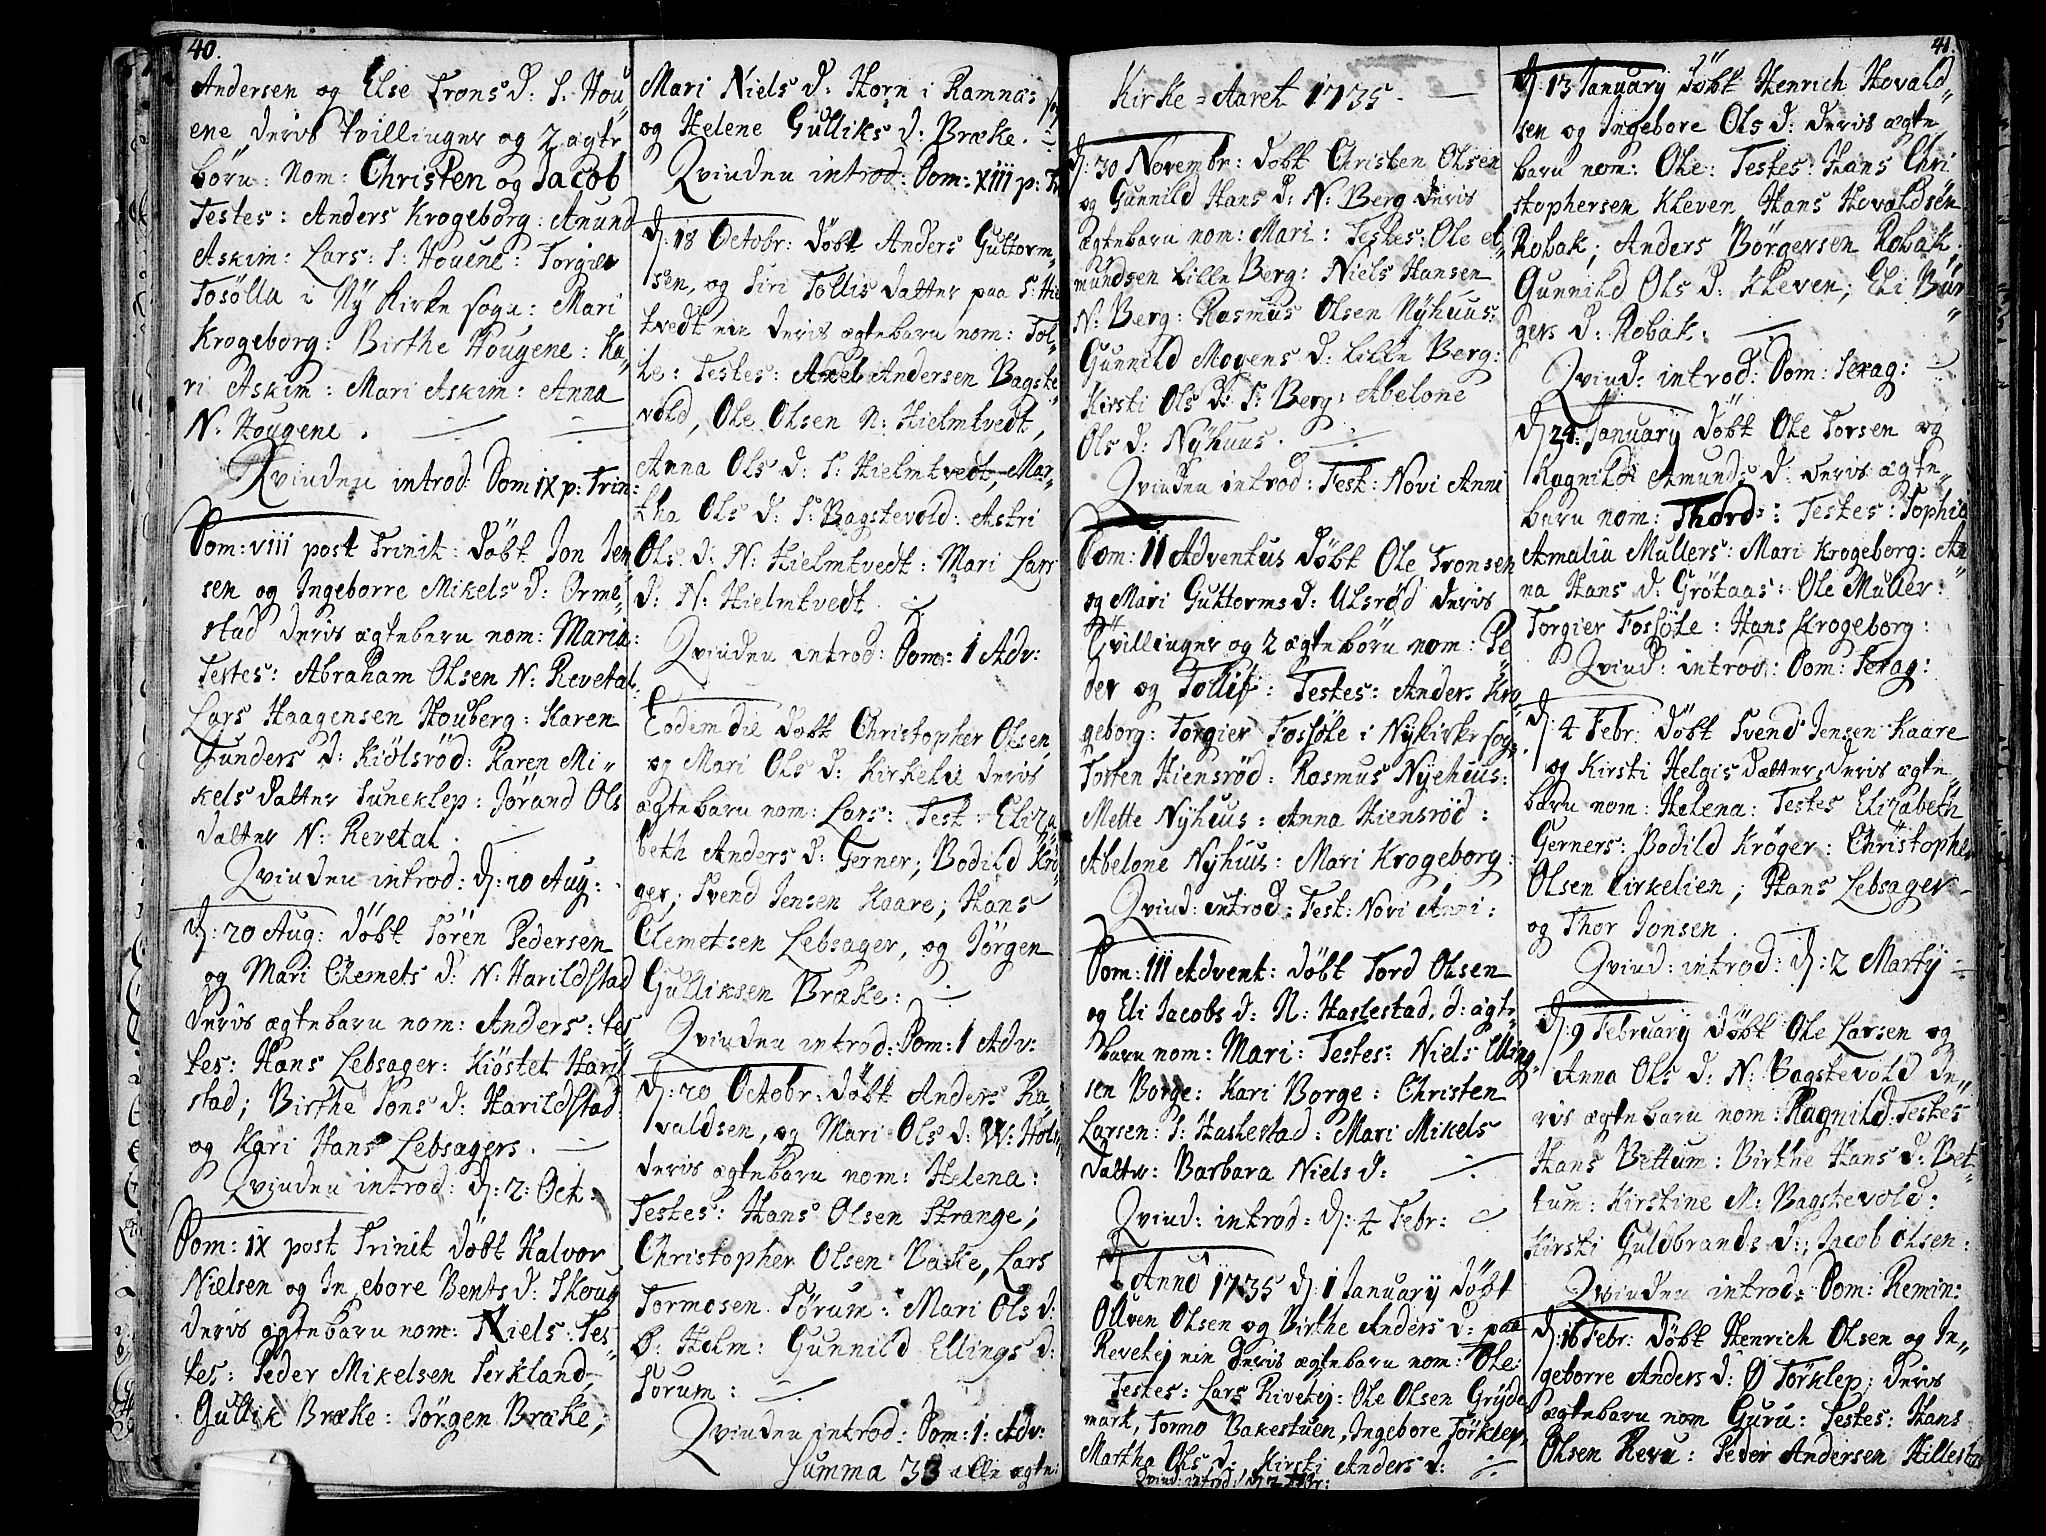 40.
Andersen og Else Trons d: S. Hou
ene deris tvillinger og 2 ægte
børn: nom: Christen og Jacob
Testes: Anders Krogeborg: Amund
Askim: Lars: S: Houene: Torgier
Fosølla i Ny Kirke sogn: Mari
Krogeborg: Birthe Hougene: Ka„
ri Askim: Mari Askim: Anna
N. Hougene.
Qvinden introd: Dom IX p: Trin:
Dom: VIII post Trinit: døbt Jon Jen
sen og Ingeborre Mikels d: Orme„
stad deris ægtebarn nom: Maria:
Testes: Abraham Olsen N: Revetal
Lars Haagensen Houberg: Karen
Gunders d: Kiölsröd: Karen Mi„
kels datter Suneklep: Jörand Ols
datter N: Revetal.
Qvinden introd: d: 20 Aug:
d: 20 Aug: døbt Sören Pedersen
og Mari Clemets d: N: Harildstad
deris ægtebarn nom: Anders: tes„
tes: Hans Lebsager: Kiöstel Haril
stad; Birthe Jons d: Harildstad:
og Kari Hans Lebsagers.
Qvinden introd: d: 2: Oct:
Dom: IX post Trinit døbt Halvor
Nielsen og In ebore Bents d: Skoug
deris ægtebarn nom: Niels: Tes„
tes: Peder Mikelsen Serkland,
Gullik Bræke: Jörgen Bræke,
Mari Niels d: Horn i Ramnæs
og Helene Gulliks d: Bræke.
Qvinden introd: Dom: XIII p: Tr
d: 18 Octobr: døbt Anders Guttorm„
sen, og Siri Tollis datter paa S: Hie
tvedt eie deris ægtebarn nom: Tol„
le: Testes: Axel Andersen Bagste„
vold, Ole Olsen N: Hielmtvedt,
Anna Ols d: S: Hielmtvedt, Mar„
tha Ols d: S: Bagstevold: Astri
Ols d: N: Hielmtvedt: Mari Lars
d: N: Hielmtvedt.
Qvinden introd: Dom: 1 Adv:
Eodem die døbt Christopher Olsen
og Mari Ols d: Kirkelie deris
ægtebarn nom: Lars: Test: Eliza
beth Anders d: Gerner; Bodild Krö„
ger; Svend Jensen Kaare; Hans
Clemetsen Lebsager, og Jörgen
Gulliksen Bræke:
Qvinden introd: Dom: 1 Adv:
d: 20 Octobr: døbt Anders Ra
valdsen, og Mari Ols d: W: Holm
deris ægtebarn nom: Helena:
Testes: Hans Olsen Strange;
Christopher Olsen Bake, Lars
Tormosen Sörum: Mari Ols d:
Ø: Holm: Gunnild Ellings d:
Sörum:
Qvinden introd: Dom: 1: Adv:
Summa 33 alle ægte:
Kirke=Aaret 1735.
d: 30 Novembr: døbt Christen Olsen
og Gunnild Hans d: N: Berg deris
ægtebarn nom: Mari: Testes: Ole A„
mundsen Lille Berg: Niels Hansen
N: Berg: Rasmus Olsen Nyhuus:
Gunnild Mogens d: Lille Berg:
Kirsti Ols d: S: Berg: Abelone
Ols d: Nyhuus.
Qvinden introd: Fest: Novi Anni
Dom: II Adventus døbt Ole Tronsen
og Mari Guttorms d: Ulsröd deris
Tvillinger og 2 ægtebörn nom: Pe„
der og Tollif: Testes: Anders Kro„
geborg: Torgier Fossöle i Nykirke sogn.
Torten Hiensröd: Rasmus Nyehuus:
Mette Nyhuus: Anna Hiensröd:
Abelone Nyhuus: Mari Krogeborg:
Qvind: introd: Fest: Novi Anni:
Dom: III Advent: döbt Tord Olsen
og Eli Jacobs d: N: Haslestad, d: ægte„
barn nom: Mari: Testes: Niels Elling„
sen Borge: Kari Borge: Christen
Larsen: S: Haslestad: Mari Mikels
datter: Barbara Niels d:
Qvind: introd: d: 4 Febr:
Anno 1735 d: 1 January döbt
Olluen Olsen og Birthe Anders d: paa
Revetej eie deris ægtebarn nom: Ole:
Testes: Lars Rivetej: Ole Olsen Gryde
mark, Tormo Bakestuen, Ingebore Törklep,
Martha Ols d: Kirsti Anders d:
Qvind: introd: d: 2 Febr:
41.
d: 13 January döbt Henrich Hovald„
sen og Ingebore Ols d: deris ægte
barn nom: Ole: Testes: Hans Chri
stophersen Kleven Hans Hovaldsen
Robak; Anders Börgersen Robak;
Gunnild Ols d: Kleven; Eli Bür„
gers d: Robak:
Qvind: introd: Dom: Sexag:
d: 24: January döbt Ole Torsen og
Ragnild Amunds d: deris ægte„
barn nom: Thord: Testes: Sophia
Amalia Mullers: Mari Krogeborg: An„
na Hans d: Grötaas: Ole Muller:
Torgier Fossöle: Hans Krogeborg:
Qvind: introd: Dom: Sexag:
d: 4 Febr: döbt Svend Jensen Kaare
og Kirsti Helgis datter deris ægte„
barn nom: Helena: Testes Elizabeth
Gerners: Bodild Kröger: Christopher
Olsen Kirkelien; Hans Lebsager:
og Thor Jonsen.
Qvind: introd: d: 2 Marty
d: 9 February döbt Ole Larsen og
Anna Ols d: N: Bagstevold de„
ris ægtebarn nom: Ragnild. Testes
Hans Bettum: Birthe Hans d: Bet„
tum: Kirstine M: Bagstevold:
Kirsti Guldbrands d:, Jacob Olsen:
Qvinden introd: Dom: Remin:
d: 16 Febr: döbt Henrich Olsen og In„
geborre Anders d: Ø Törklep: deris
ægtebarn nom Guru: Testes: Hans
Olsen Revu: Peder Andersen Hillestad